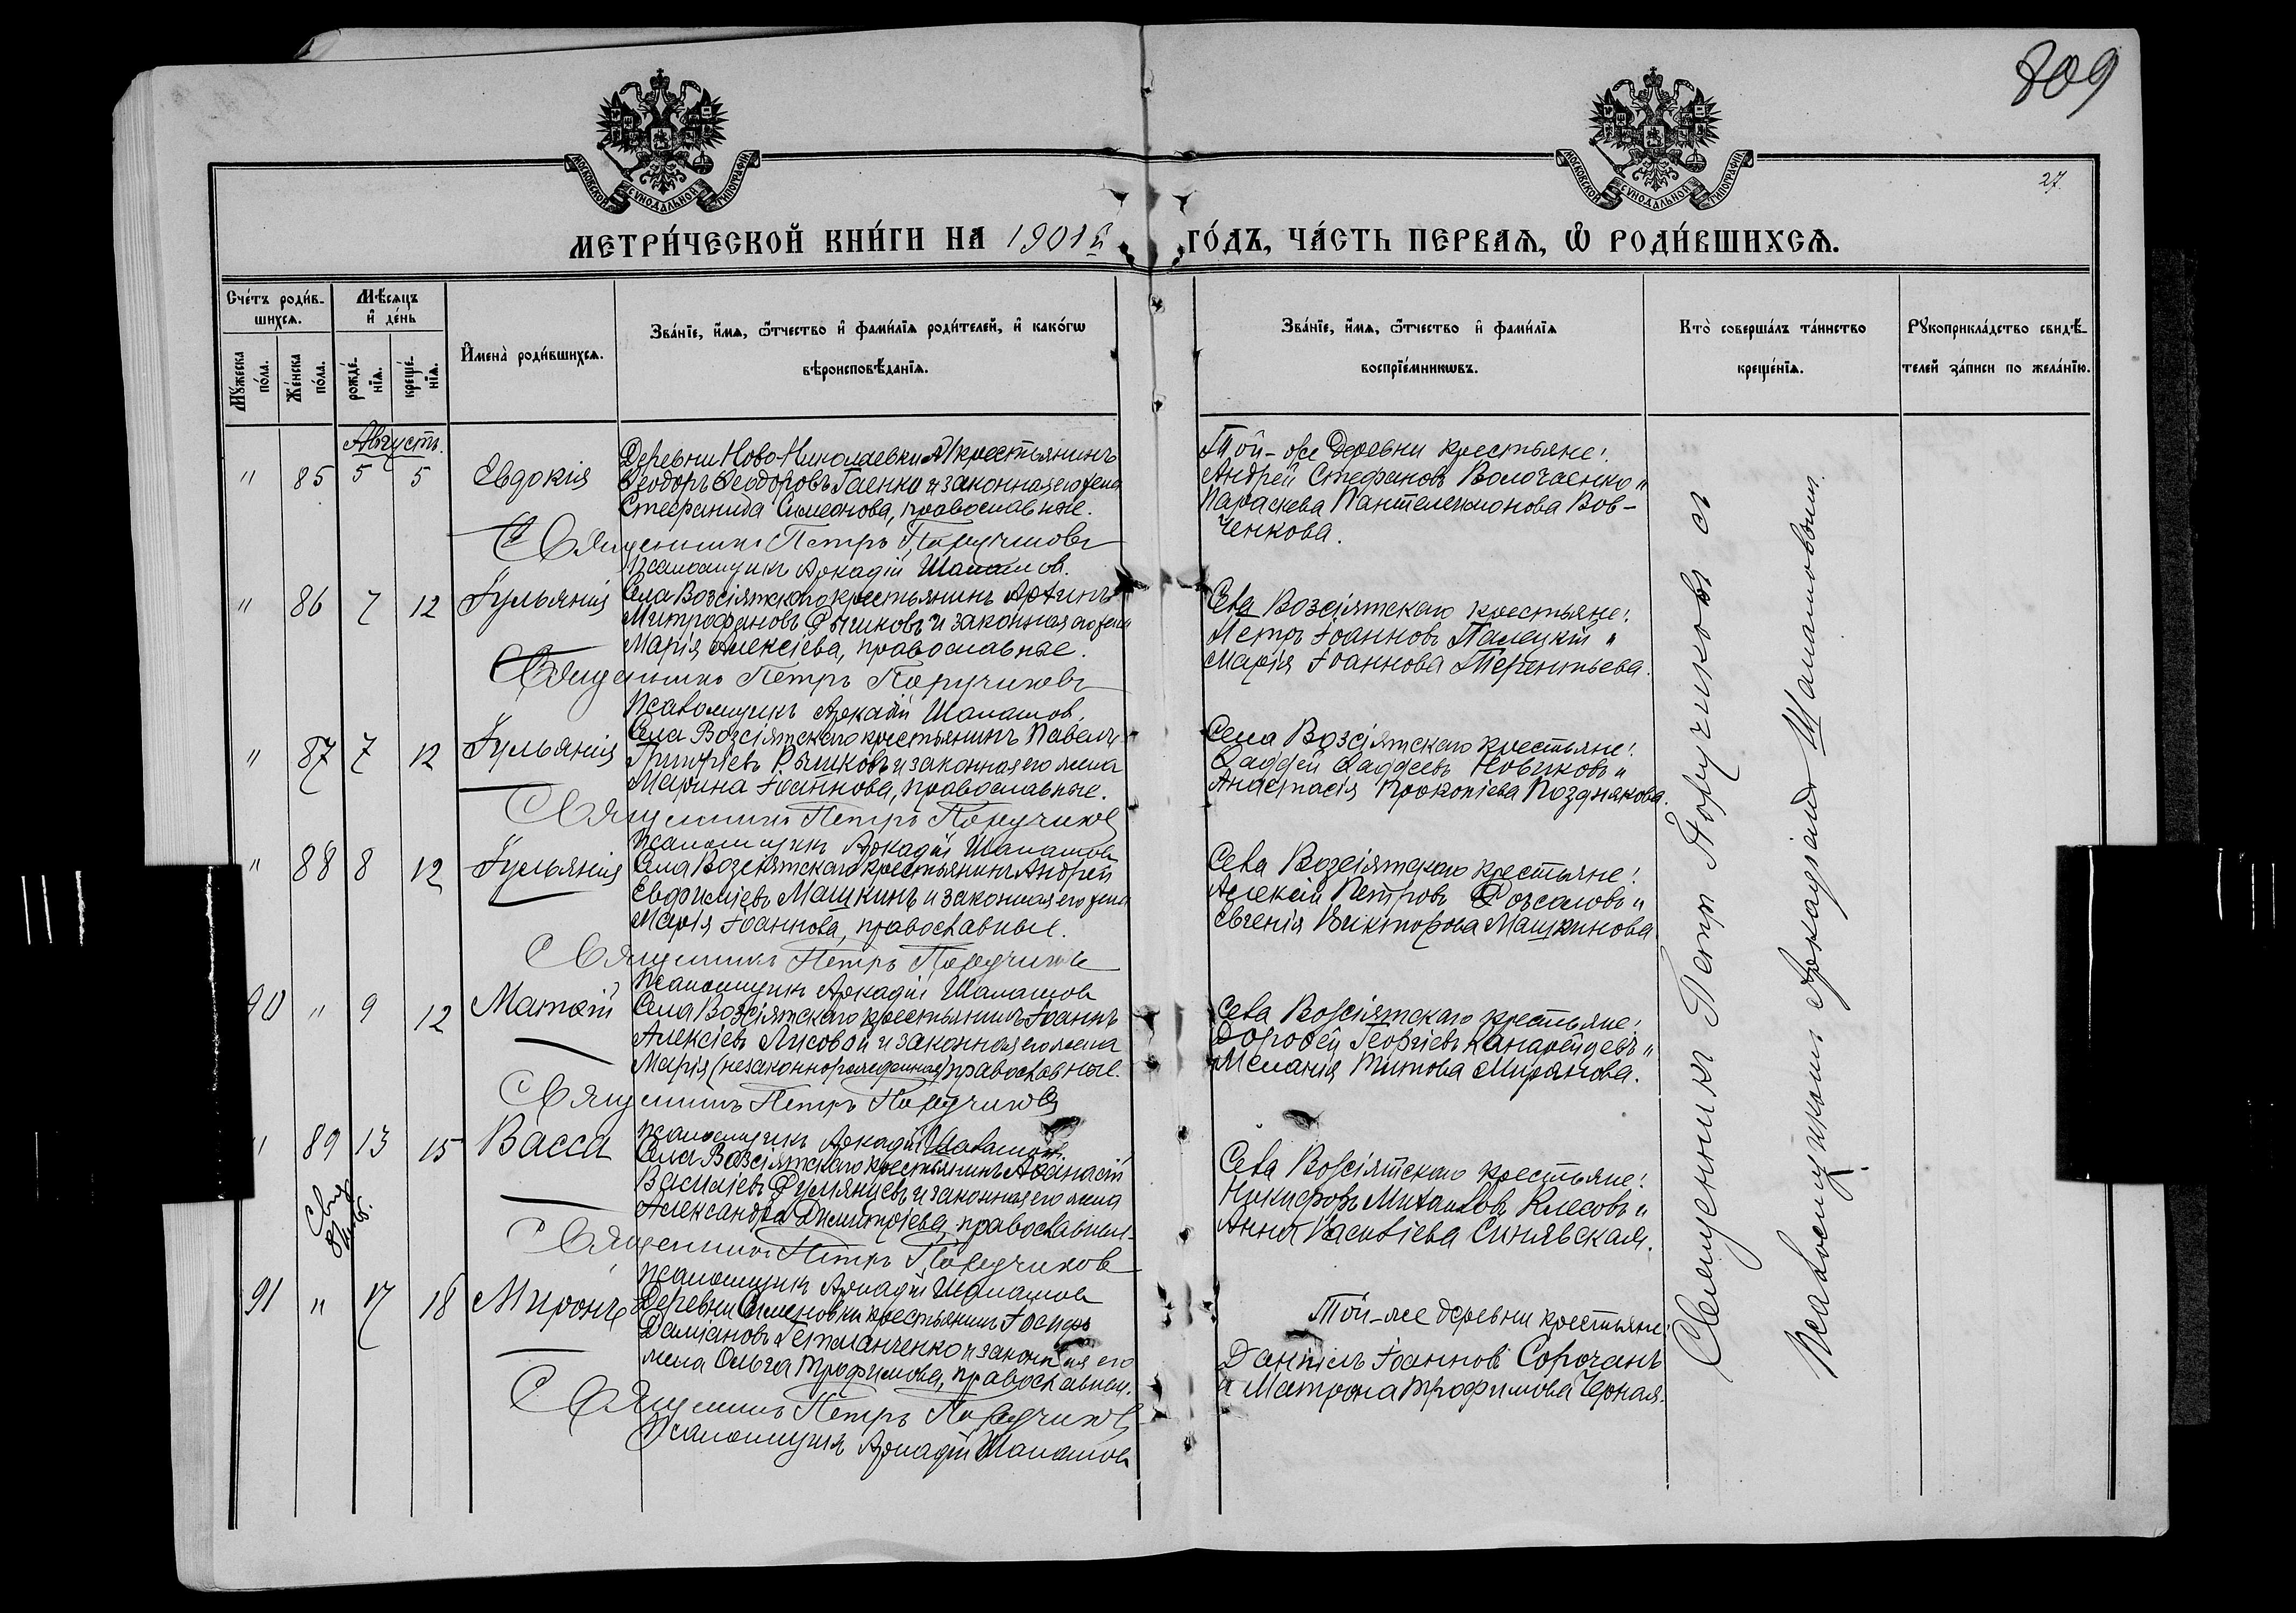 809
27.
МОСКОВСКОЙ СѴНОДАЛЬНОЙ ТИПОГРАФІИ
МОСКОВСКОЙ СѴНОДАЛЬНОЙ ТИПОГРАФІИ
МЕТРИ́ЧЕСКОЙ КНИ́ГИ НА 1901й ГО́ДЪ, ЧА́СТЬ ПЕРВАѦ, Ѽ РОДИ́ВШИХСѦ.
Сче́тъ роди́в-
шихсѧ.
Мѣ́сѧцъ
и҆ де́нь
Мꙋжеска
по́ла.
Же́нска
по́ла.
рожде́-
нїѧ.
креще́-
нїѧ.
И҆мена̀ роди́вшихсѧ.
Зва́нїе, и҆́мѧ, ѻ҆́тчество и҆ фами́лїѧ роди́телей, и҆ како́гѡ
вѣроисповѣ́данїѧ.
Зва́нїе, и҆́мѧ, ѻ҆́тчество и҆ фами́лїѧ
воспрїе́мникѡвъ.
Кто̀ соверша́лъ та́инство
креще́нїѧ.
Рꙋкоприкла́дство свидѣ́-
телей за́писи по жела́нїю.
Августъ.
" 85 5 5 Евдокія
Деревни Ново-Николаевки крестьянинъ
Ѳеодоръ Ѳеодоровъ Гаенко и законная его жена
Стефанида Симеонова, православные.
Священникъ Петръ Поручиковъ
Псаломщикъ Аркадій Шаламов.
Той-же деревни крестьяне:
Андрей Стефановъ Волочаенко и
Параскева Пантелеимонова Вов-
ченкова.
" 86 7 12 Іульянія
Села Возсіятского крестьянинъ
Митрофановъ и законная его жена
Марія Алексіева, православные.
Священникъ Петръ Поручиковъ
Псаломщикъ Аркадій Шаламов.
Села Возсіятскаго крестьяне:
Петръ Іоанновъ Палецкій и
Марія Іоаннова Терентьева.
" 87 7 12 Іульянія
Села Возсіятскаго крестьянинъ Павелъ
Григоріевъ Рышковъ и законная его жена
Марина Іоаннова, православные.
Священникъ Петръ Поручиковъ
Псаломщикъ Аркадій Шаламов
Села Возсіятскаго крестьяне:
Ѳаддей Ѳаддеевъ Новиковъ и
Анастасія Прокопіева Позднякова.
" 88 8 12 Іульянія
Села Возсіятскаго крестьянинъ Андрей
Евфиміевъ Машкинъ и законная его жена
Марія Іоаннова, православные.
Священникъ Петръ Поручиков
Псаломщикъ Аркадій Шаламов
Села Возсіятскаго крестьяне:
Алексій Петровъ и
Евгенія Викторова Машкинова
90 " 9 12 Матѳій
Села Возсіятскаго крестьянинъ Іоаннъ
Алексіевъ Лисовой и законная его жена
Марія (незаконнорожденная) православные.
Священникъ Петръ Поручиковъ
Псаломщикъ Аркадій Шаламов.
Села Возсіятскаго крестьяне:
Дороѳей Георгіевъ и
Меланія Титова Миранова.
" 89 13 15 Васса
Села Возсіятскаго крестьянинъ Аѳанасій
Василіевъ Румянцевъ и законная его жена
Александра Димитріева, православные.
Священникъ Петръ Поручиков
Псаломщикъ Аркадій Шаламов
Села Возсіятскаго крестьяне:
Никифоръ Михаиловъ Клесовъ и
Анна Василіева Синявская.
91 " 17 18 Миронъ
Деревни Семеновки крестьянинъ Іосифъ
Даміановъ Гетманченко и законная его
жена Ольга Трофимова, православные.
Священникъ Петръ Поручиковъ
Псаломщикъ Аркадій Шаламов
Той-же деревни крестьяне:
Даніилъ Іоанновъ Сорочанъ
и Матрона Трофимова Черная.
Священникъ Петръ Поручиковъ съ
Псаломщикомъ Аркадіемъ Шаламовымъ.